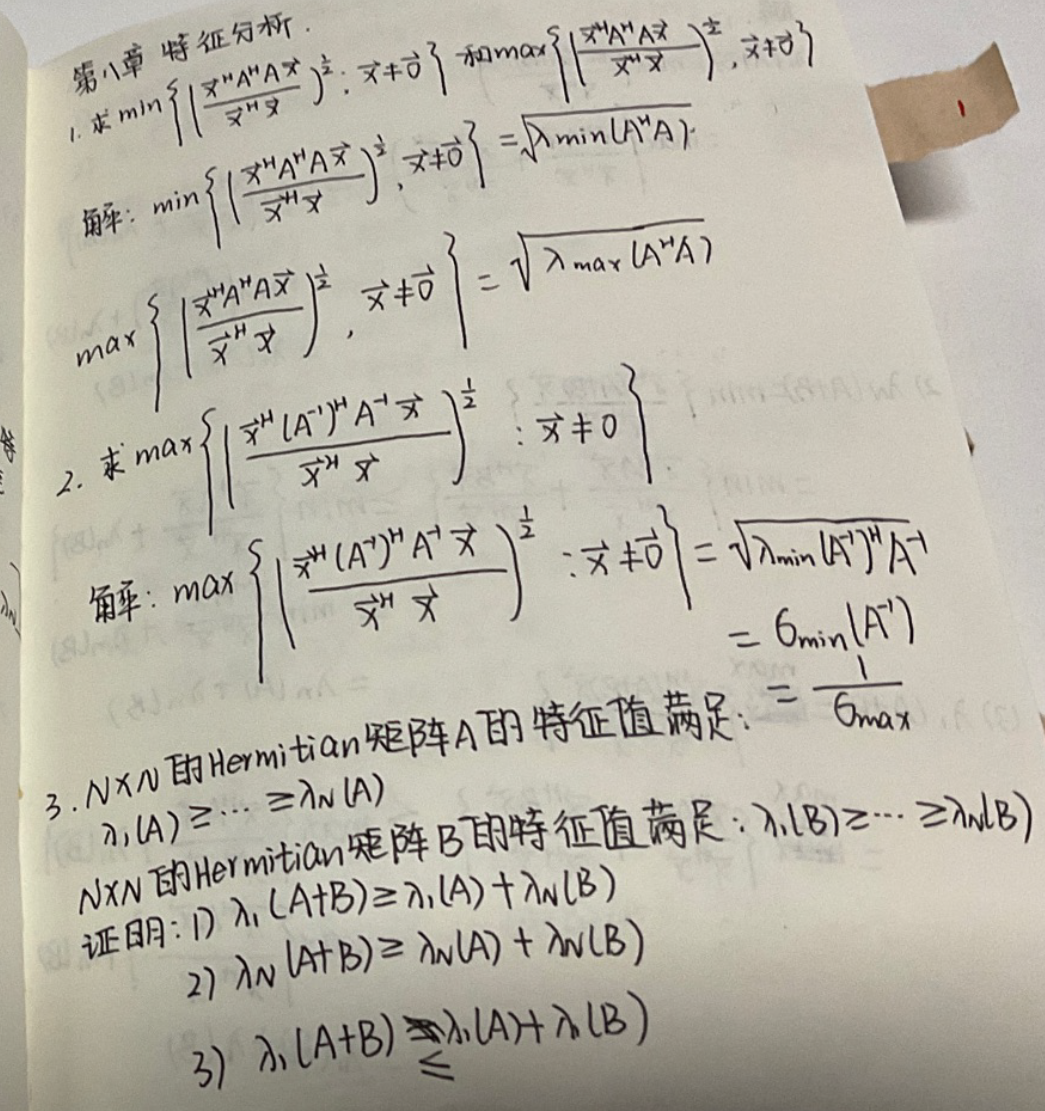 第八章 特征分析.
1. 求 min{(x⃗ᴴAᴴAx⃗ / x⃗ᴴx⃗)^½ : x⃗≠0⃗} 和 max{(x⃗ᴴAᴴAx⃗ / x⃗ᴴx⃗)^½, x⃗≠0⃗}
解: min{(x⃗ᴴAᴴAx⃗ / x⃗ᴴx⃗)^½, x⃗≠0⃗} = √(λmin(AᴴA))
max{(x⃗ᴴAᴴAx⃗ / x⃗ᴴx⃗)^½, x⃗≠0⃗} = √(λmax(AᴴA))
2. 求 max{(x⃗ᴴ(A⁻¹)ᴴA⁻¹x⃗ / x⃗ᴴx⃗)^½ : x⃗≠0}
解: max{(x⃗ᴴ(A⁻¹)ᴴA⁻¹x⃗ / x⃗ᴴx⃗)^½ : x⃗≠0⃗} = √(λmin(A⁻¹)ᴴA⁻¹
= 6min(A⁻¹)
= 1/6max
3. N×N的Hermitian矩阵A的特征值满足:
λ₁(A)≥…≥λN(A)
N×N的Hermitian矩阵B的特征值满足: λ₁(B)≥…≥λN(B)
证明: 1) λ₁(A+B)≥λ₁(A)+λN(B)
2) λN(A+B)≥λN(A)+λN(B)
3) λ₁(A+B)≤λ₁(A)+λ₁(B)